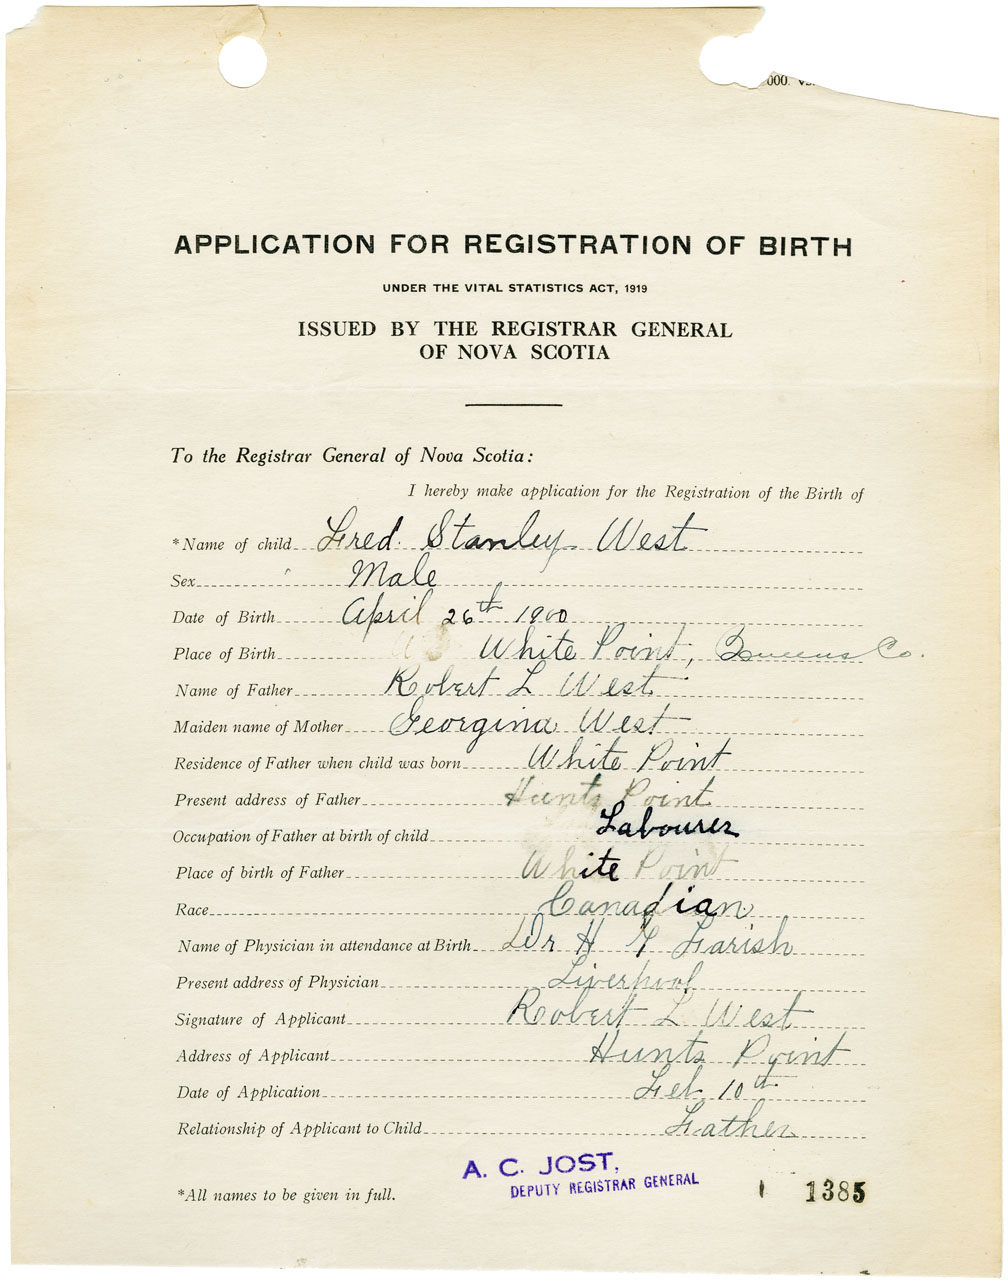 000. VS.
APPLICATION FOR REGISTRATION OF BIRTH
UNDER THE VITAL STATISTICS ACT, 1919
ISSUED BY THE REGISTRAR GENERAL
OF NOVA SCOTIA
To the Registrar General of Nova Scotia:
I hereby make application for the Registration of the Birth of
*Name of child Fred. Stanley West
Sex Male
Date of Birth April 26th 1900
Place of Birth White Point, Queens Co.
Name of Father Robert L West
Maiden name of Mother Georgina West
Residence of Father when child was born White Point
Present address of Father Hunts Point
Occupation of Father at birth of child Labourer
Place of birth of Father White Point
Race Canadian
Name of Physician in attendance at Birth Dr H G Farish
Present address of Physician Liverpool
Signature of Applicant Robert L West
Address of Applicant Hunts Point
Date of Application Feb 10th
Relationship of Applicant to Child Father
A. C. JOST,
DEPUTY REGISTRAR GENERAL
*All names to be given in full.
1385